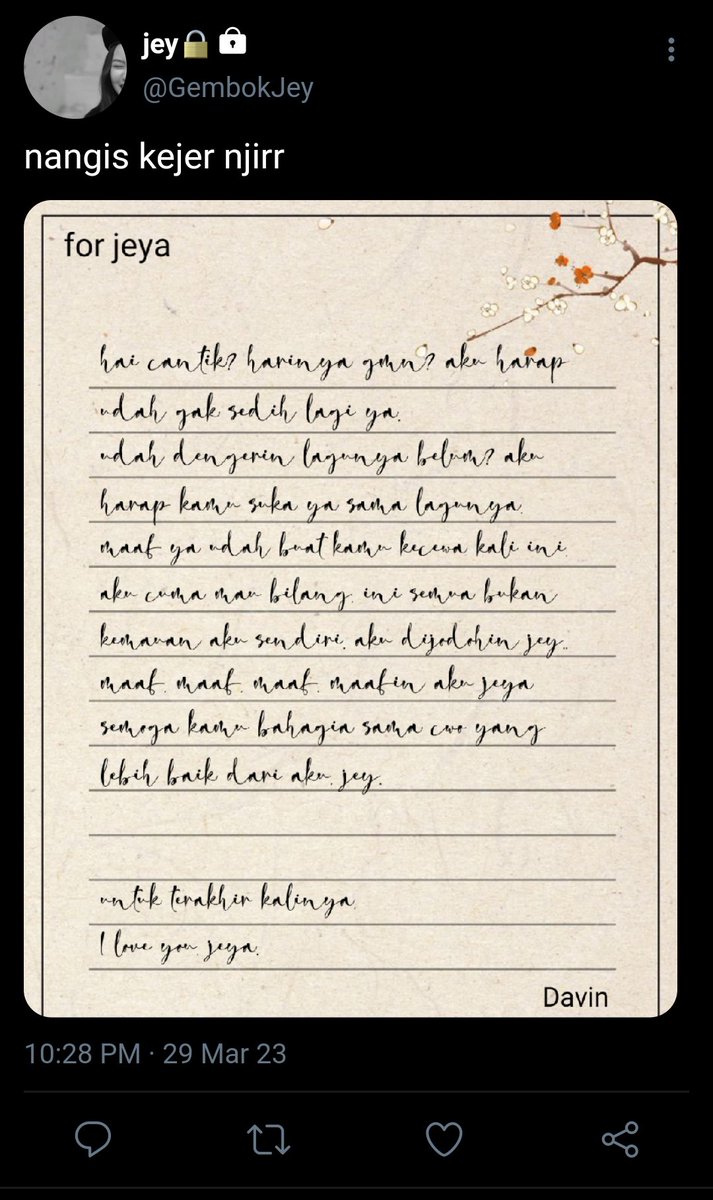 jey🔒
@GembokJey
nangis kejer njirr
for jeya
hai cantik? harinya gmn? aku harap
udah gak sedih lagi ya.
udah dengerin lagunya belum? aku
harap kamu suka ya sama lagunya.
maaf ya udah buat kamu kecewa kali ini.
aku cuma mau bilang. ini semua bukan
kemauan aku sendiri. aku dijodohin jey..
maaf. maaf. maaf. maafin aku jeya
semoga kamu bahagia sama cwo yang
lebih baik dari aku. jey.
untuk terakhir kalinya.
I love you jeya.
Davin
10:28 PM · 29 Mar 23